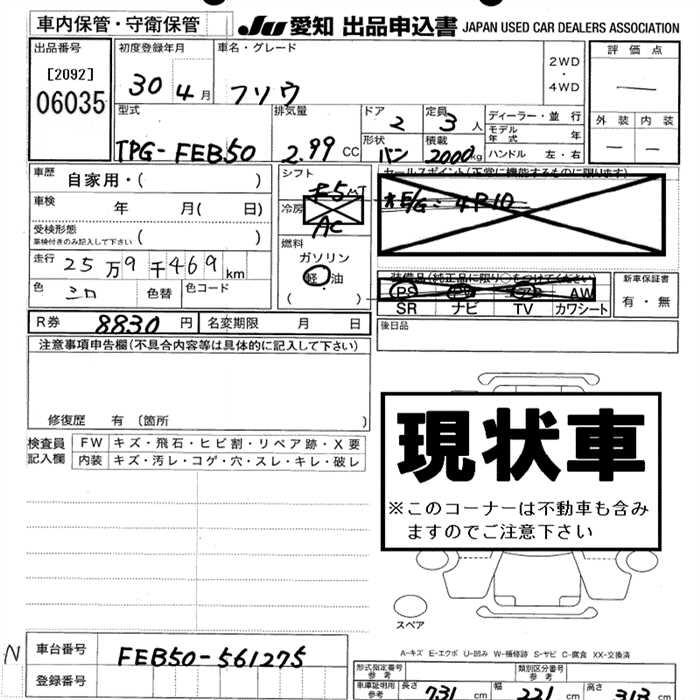 車内保管・守衛保管 JU 愛知 出品申込書 JAPAN USED CAR DEALERS ASSOCIATION
出品番号 初度登録年月 車名・グレード 2WD・4WD 評価点
[2092] 06035 30 4月 フソウ —
外装 内装
— —
型式 排気量 ドア 定員 ディーラー・並行
2 3人 モデル年式 年
TPG-FEB50 2.99 CC 形状 バン 積載 2000kg ハンドル 左・右
車歴 自家用・( ) シフト F5 MT セールスポイント(正常に機能するものに限ります)
車検 年 月( 日) 冷房 AC *E/G:-4P10
受検形態 車検付きのみ記入して下さい ( ) 燃料
ガソリン
走行 25万9千469km 軽・油 装備品(純正品に限り○をつけてください) 新車保証書
色 シロ 色替 色コード ( ) PS AW 有・無
SR ナビ TV カワシート
R券 8830円 名変期限 月 日 後日品
注意事項申告欄(不具合内容等は具体的に記入して下さい)
修復歴 有 〔箇所 〕
現状車
検査員記入欄 FW キズ・飛石・ヒビ割・リペア跡・X要
内装 キズ・汚レ・コゲ・穴・スレ・キレ・破レ
※このコーナーは不動車も含み
ますのでご注意下さい
スペア
A-キズ E-エクボ U-凹み W-補修跡 S-サビ C-腐食 XX-交換済
N 車台番号 FEB50-561275
登録番号
形式指定番号 参考 類別区分番号 参考
車庫証明用 参考 長さ 731 cm 幅 221 cm 高さ 313 cm